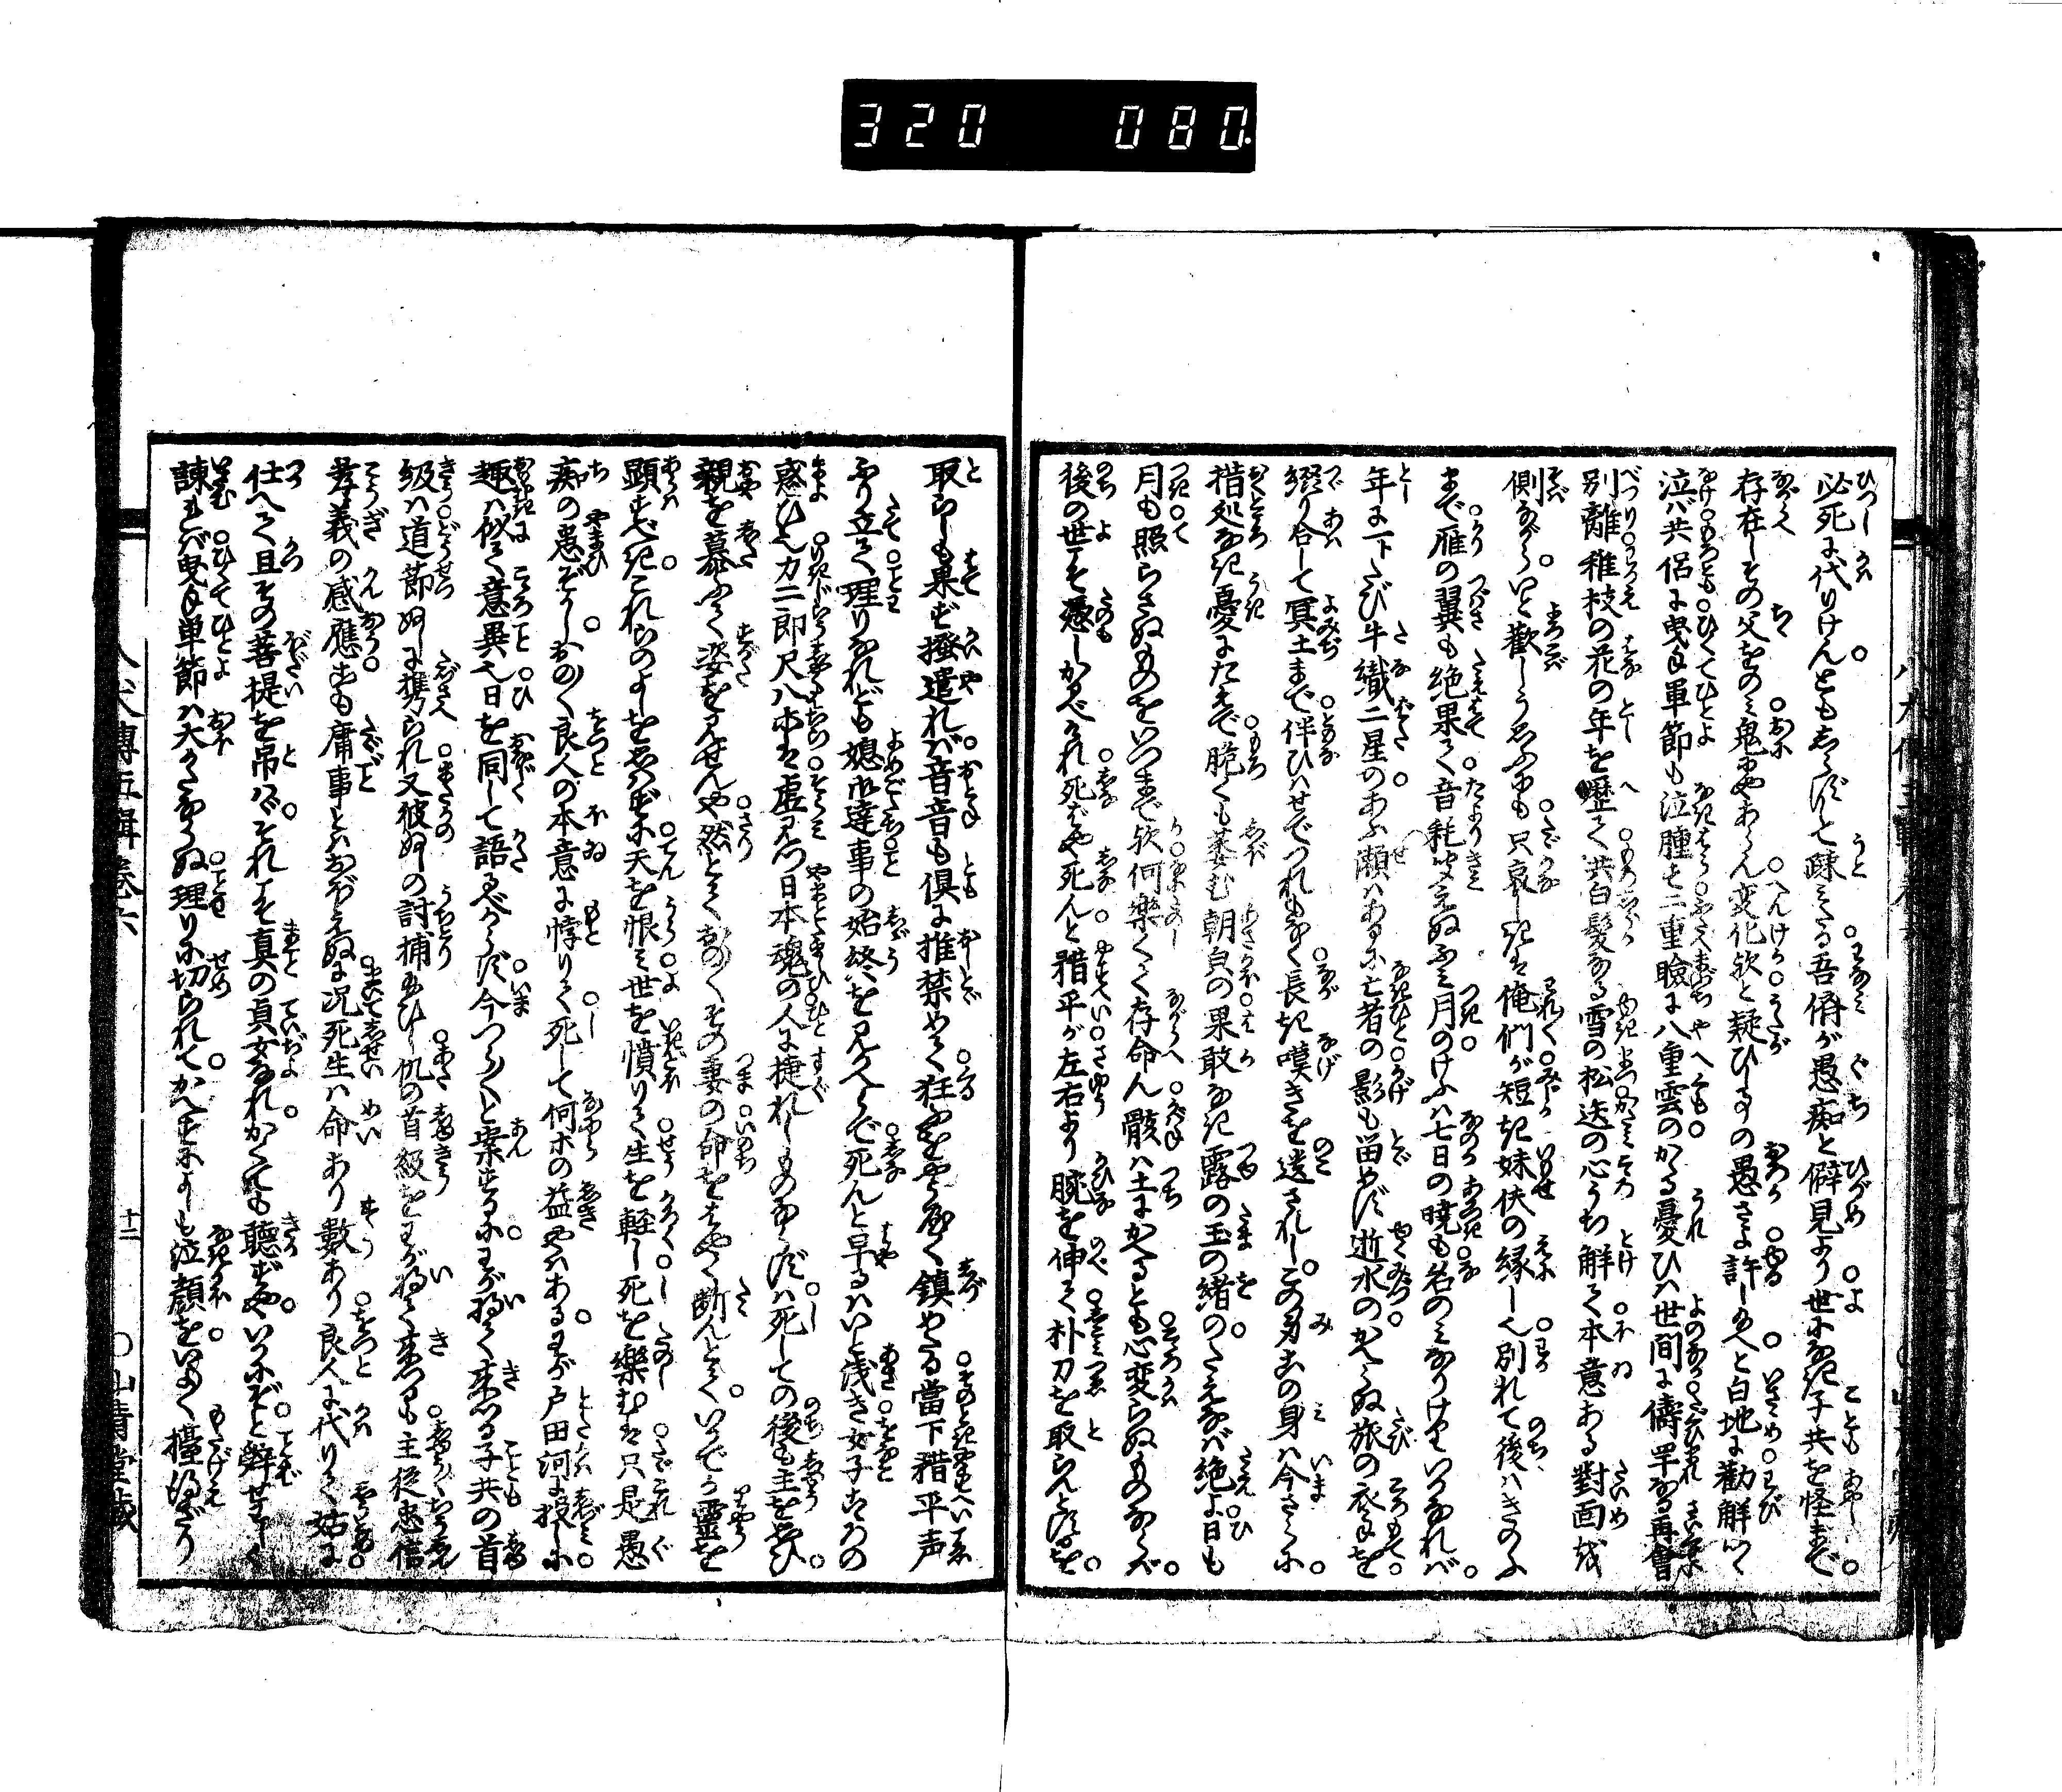 320 080
必死に代りけんともしらずして疎みたる吾儕が愚痴と僻見より世になき子共を怪まで
存在しその父をのみ鬼にやあらん変化歟と疑ひまうしの愚さよ許し給へと白地に勧解つゝ
泣ば共侶に曳手単節も泣腫す二重瞼に八重雲のかゝる憂ひは世間に儔罕なる再會
別離稚枝の花の年を歴て共白髪なる雪の松迭の心うち解て本意ある對面を
側ながらいと歓しう思ふにも只哀しきは俺們が短き妹伕の縁にし別れて後はきのふ
まで雁の翼も絶果て音耗聞えぬふみ月のけふは七日の暁も名のみなりけりいかなれば
年に一トたび牛織二星のあふ瀬はあるに亡者の影も留めず逝水のかへらぬ旅の衣手を
綴り合して冥土まで伴ひはせでつれもなく長き嘆きを遺されしこの身かの身は今さらに
措処なき憂にたへで脆くも萎む朝皃の果敢なき露の玉の緒のたえなば絶よ日も
月も照らさぬものをいつまで歟何樂くて存命ん骸は土にかへるとも心変らぬものならば
後の世でこそ憑しかるべけれ死ばや死んと矠平が左右より腕を伸て朴刀を取らんとするを
取らしも果ず撥遣れば音音も倶に推禁めて狂ふをやうやく鎮めたる當下矠平声
ふり立て理りなれども媳御達事の始終を見かへらで死んと早るはいと浅き女子こゝろの
惑ひ也力二郎尺八等は虚しう日本魂の人に捷れしものならずは死しての後も主を思ひ
親を慕ふて姿を見せんや然とておの〳〵その妻の命をはやく断んとていかでか霊を
顕すべきこれらのよしを思はずに天を恨み世を憤りて生を軽し死を樂むは只是愚
痴の患ぞかしおの〳〵良人の本意に悖りて死して何等の益やはあるわが戸田河に投しに
趣は似て意異也日を同して語るべからず今つら〳〵と案ずるにわが将て来つる子共の首
級は道節ぬしに携られ又彼ぬしの討捕給ひし仇の首級をわが将て来つるも主従忠信
孝義の感應すも庸事とはおぼえぬに况死生は命あり數あり良人に代りて姑に
仕へて且その菩提を吊はゞそれこそ真の貞女なれかくても聴ずやいかにぞと辞せわしく
諫れば曳手単節は大かたならぬ理りに切られてかへすによしも泣顔をいよゝ擡得ざり
八犬傳五輯巻六　十二　○山青堂藏